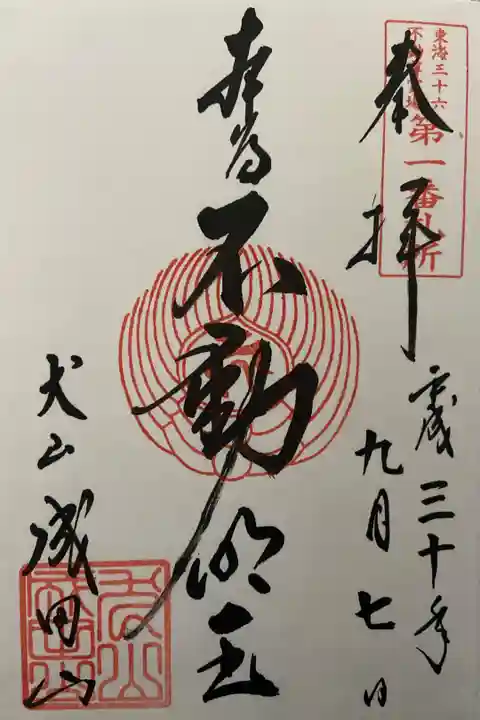 東海三十六
不動尊霊場
第一番札所
奉拝
平成三十年
九月七日
本尊
不動明王
犬山成田山